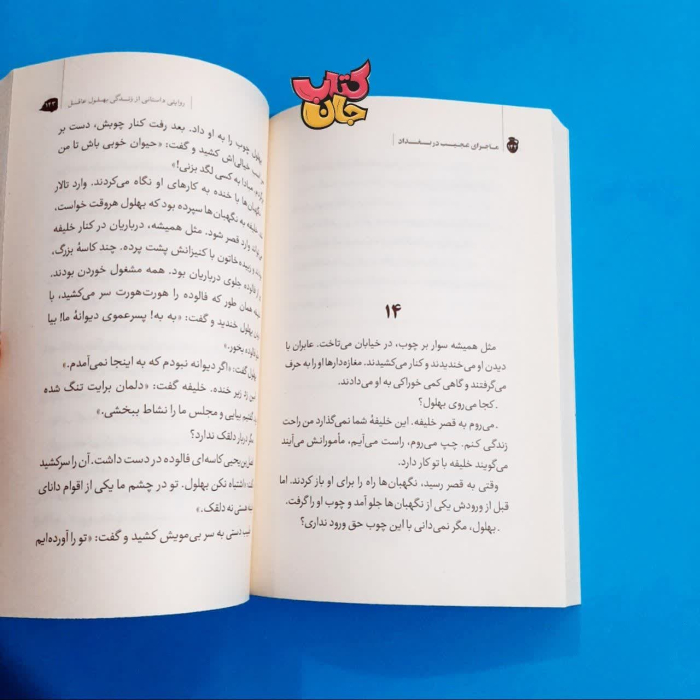 ماجرای عجیب در بغداد
کتاب
جان
۱۴
مثل همیشه سوار بر چوب، در خیابان می‌تاخت. عابران با
دیدن او می‌خندیدند و کنار می‌کشیدند. مغازه‌دارها او را به حرف
می‌گرفتند و گاهی کمی خوراکی به او می‌دادند.
ـ کجا می‌روی بهلول؟
ـ می‌روم به قصر خلیفه. این خلیفهٔ شما نمی‌گذارد من راحت
زندگی کنم. چپ می‌روم، راست می‌آیم، مأمورانش می‌آیند
می‌گویند خلیفه با تو کار دارد.
وقتی به قصر رسید، نگهبان‌ها راه را برای او باز کردند. اما
قبل از ورودش یکی از نگهبان‌ها جلو آمد و چوب او را گرفت.
ـ بهلول، مگر نمی‌دانی با این چوب حق ورود نداری؟
روایتی داستانی از زندگی بهلول عاقل
۱۴۳
بهلول چوب را به او داد. بعد رفت کنار چوبش، دست بر
خیالی‌اش کشید و گفت: «حیوان خوبی باش تا من
مبادا به کسی لگد بزنی!»
نگهبان‌ها با خنده به کارهای او نگاه می‌کردند. وارد تالار
خلیفه به نگهبان‌ها سپرده بود که بهلول هروقت خواست،
وارد قصر شود. مثل همیشه، درباریان در کنار خلیفه
و زبیده‌خاتون با کنیزانش پشت پرده. چند کاسهٔ بزرگ،
فالوده جلوی درباریان بود. همه مشغول خوردن بودند.
همان طور که فالوده را هورت‌هورت سر می‌کشید، با
بهلول خندید و گفت: «به به! پسرعموی دیوانهٔ ما! بیا
فالوده بخور.»
بهلول گفت: «اگر دیوانه نبودم که به اینجا نمی‌آمدم.»
زد زیر خنده. خلیفه گفت: «دلمان برایت تنگ شده
گفتیم بیایی و مجلس ما را نشاط ببخشی.»
مگر دربار دلقک ندارد؟
یحیی کاسه‌ای فالوده در دست داشت. آن را سرکشید
«اشتباه نکن بهلول. تو در چشم ما یکی از اقوام دانای
هستی نه دلقک.»
دستی به سر بی‌مویش کشید و گفت: «تو را آورده‌ایم